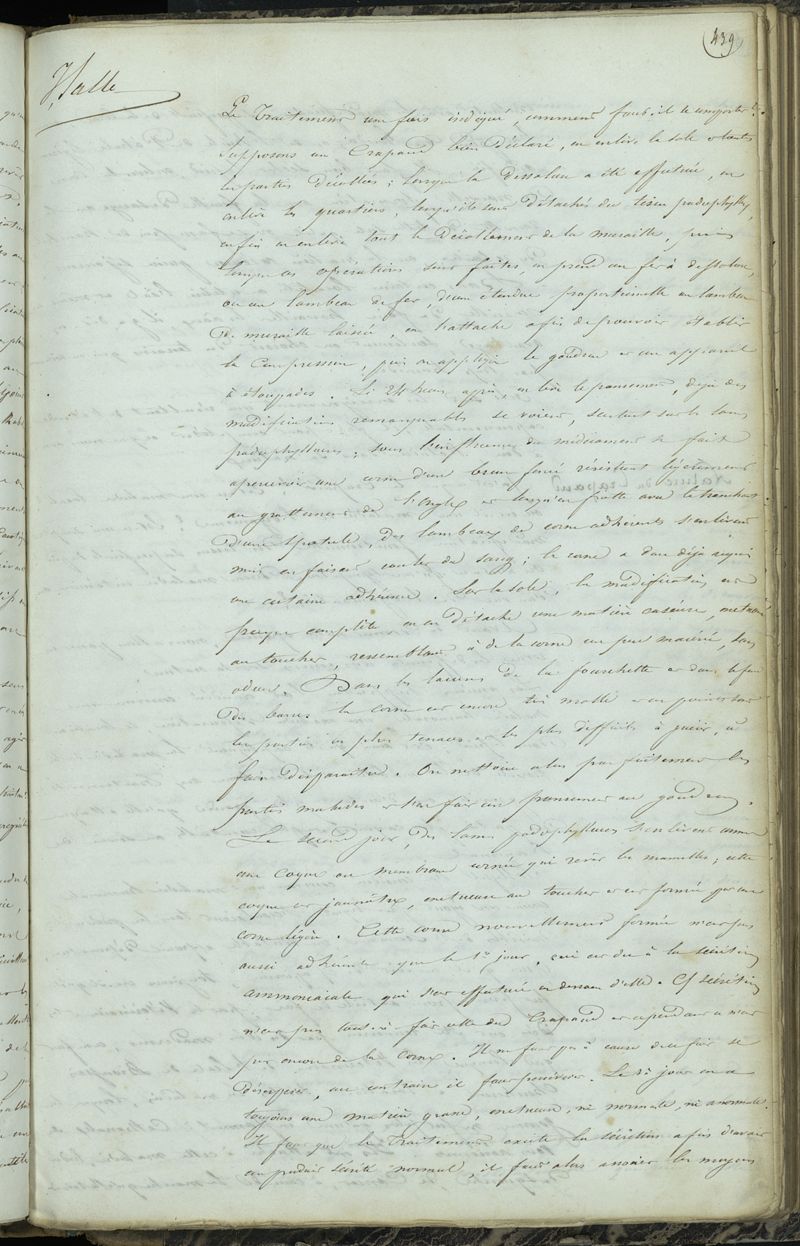 439
Halle
Le Traitement une fois indiqué, comment faut-il se comporter.
Supposons un Crapaud bien déclaré, on enlève la sole et toutes
les parties décollées ; lorsque la dessolure a été effectuée, on
enlève les quartiers, lorsqu'ils sont détachés du tissu podophylleux,
enfin on enlève tout le décollement de la muraille, puis
lorsque ces opérations sont faites, on prend un fer à dessolure,
ou un lambeau de fer, d'une étendue proportionnelle au lambeau
de muraille laissée, on l'attache afin de pouvoir établir
la compression, puis on applique le goudron et un appareil
à étoupades. Si 24 heures après, on lève le pansement, déjà des
modifications remarquables se voient, surtout sur les lames
podophylleuses ; sous l'influence du médicament se fait
apercevoir une corne d'un brun foncé résistant légèrement
au grattement de l'ongle et lorsqu'on frotte avec le tranchant
d'une spatule, des lambeaux de corne adhérents s'enlèvent
mais en faisant couler du sang ; la corne a donc déjà acquis
une certaine adhérence. Sur la sole, la modification est
presque complète on en détache une matière caséeuse, onctueuse
au toucher, ressemblant à de la corne un peu macérée, sans
odeur. Dans les lacunes de la fourchette et dans le fond
des barres la corne est encore très molle et en
les parties les plus tenaces et les plus difficiles à guérir, à
faire disparaître. On nettoie alors parfaitement les
parties malades et l'on fait un pansement au goudron.
Le second jour, des lames podophylleuses s'enlèvent comme
une coque ou membrane cornée qui revêt les mamelles ; cette
coque est jaunâtre, onctueuse au toucher et est formée par une
corne légère. Cette corne nouvellement formée n'est pas
aussi adhérente que le 1er jour, ceci est dû à la sécrétion
ammoniacale qui s'est effectuée en dessous d'elle. Cette sécrétion
n'est pas tout-à-fait celle du Crapaud et cependant ce n'est
pas encore de la corne. Il ne faut pas à cause de ce fait se
désespérer, au contraire il faut poursuivre. Le 3e jour on a
toujours une matière grasse, onctueuse, ni normale, ni anormale.
Il faut que le Traitement excite la sécrétion afin d'avoir
un produit sécrété normal, il faut alors associer les moyens